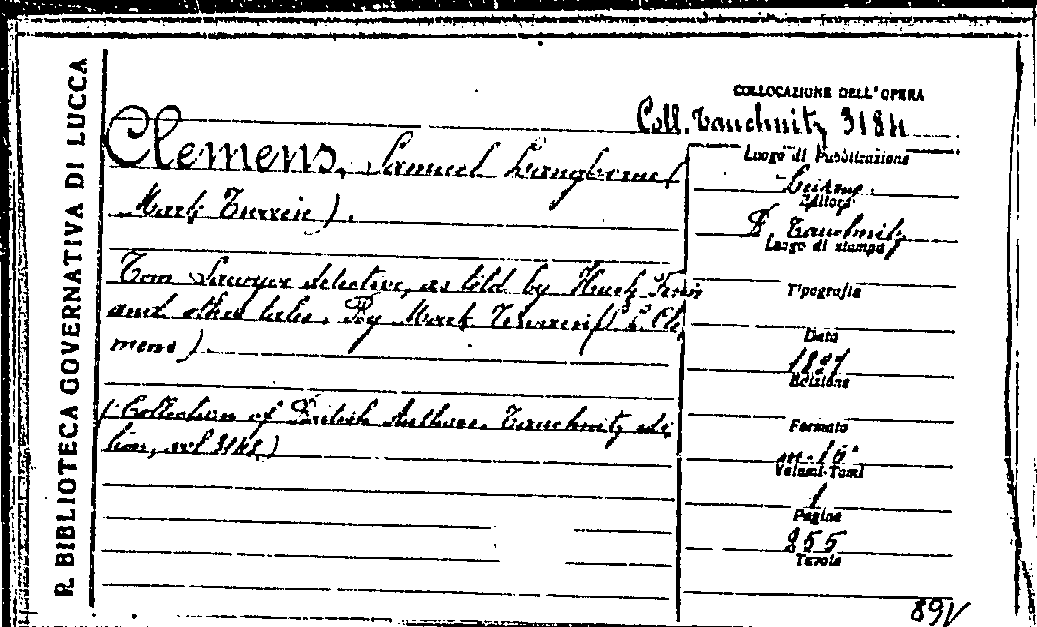 R. BIBLIOTECA GOVERNATIVA DI LUCCA
COLLOCAZIONE DELL'OPERA
Coll. Tauchnitz 3184
Clemens, Samuel Langhorne (
Mark Twain).
Tom Sawyer detective, as told by Huck Finn
and other tales. By Mark Twain (S. L. Cle
mens).
(Collection of British Authors. Tauchnitz edi
tion, vol 3184)
Luogo di Pubblicazione
Leipzig.
Editore
B. Tauchnitz
Luogo di stampa
Tipografia
Data
1897
Edizione
Formato
in-16°
Volumi-Tomi
1
Pagine
255
Tavole